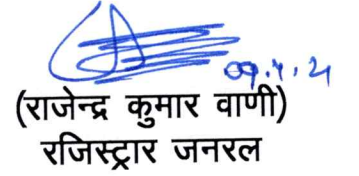 09.4.21
(राजेन्द्र कुमार वाणी)
रजिस्ट्रार जनरल